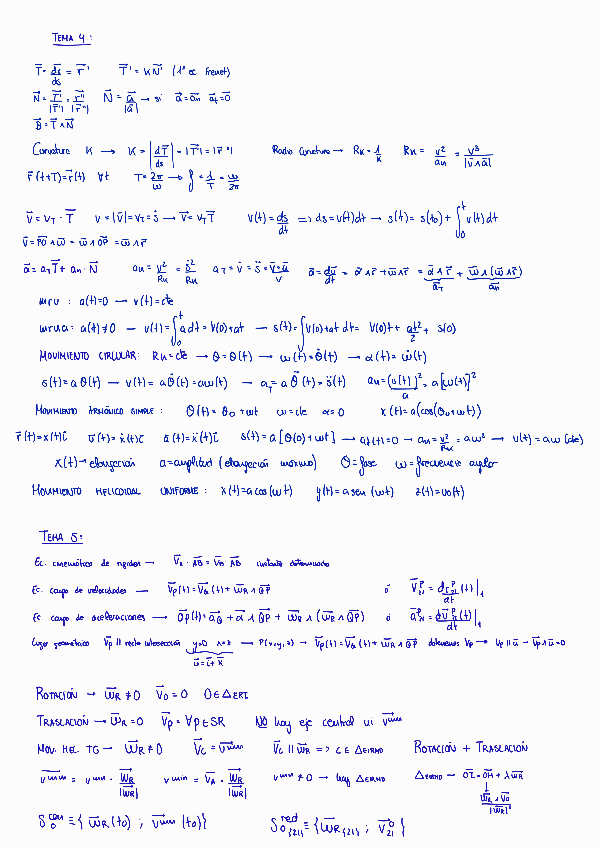 TEMA 4:
T⃗ = dr⃗/ds = r⃗' T⃗' = κN⃗ (1ª ec Frenet)
N⃗ = T⃗'/|T⃗'| = r⃗''/|r⃗''| N⃗ = a⃗/|a⃗| → si a⃗ = a⃗n aT = 0
B⃗ = T⃗ ∧ N⃗
Curvatura κ → κ = |dT⃗/ds| = |T⃗'| = |r⃗''| Radio Curvatura → Rκ = 1/κ Rκ = v²/an = v³/|v⃗∧a⃗|
r⃗(t+T) = r⃗(t) ∀t T = 2π/ω → f = 1/T = ω/2π
v⃗ = vT · T⃗ v = |v⃗| = vT = ṡ → v⃗ = vT T⃗ v(t) = ds/dt ⇒ ds = v(t)dt → s(t) = s(t0) + ∫₀ᵗ v(t)dt
v⃗ = PO⃗ ∧ ω⃗ = ω⃗ ∧ OP⃗ = ω⃗ ∧ r⃗
a⃗ = aT T⃗ + an · N⃗ an = v²/Rκ = ṡ²/Rκ aT = v̇ = s̈ = v⃗·a⃗/v a⃗ = dv⃗/dt = α⃗∧r⃗ + ω⃗∧v⃗ = α⃗∧r⃗ + ω⃗∧(ω⃗∧r⃗)
a⃗T a⃗n
mru : a(t)=0 → v(t)=cte
mrua: a(t)≠0 → v(t) = ∫₀ᵗ a dt = v(0)+at → s(t) = ∫ v(0)+at dt = v(0)t + at²/2 + s(0)
MOVIMIENTO CIRCULAR: Rκ = cte → θ = θ(t) → ω(t) = θ̇(t) → α(t) = ω̇(t)
s(t) = a θ(t) → v(t) = a θ̇(t) = aω(t) → aT = a θ̈(t) = s̈(t) an = (v(t))²/a = a[ω(t)]²
MOVIMIENTO ARMÓNICO SIMPLE: θ(t) = θ0 + ωt ω = cte α = 0 x(t) = a(cos(θ0+ωt)
r⃗(t) = x(t)i⃗ v⃗(t) = ẋ(t)i⃗ a⃗(t) = ẍ(t)i⃗ s(t) = a[θ(0)+ωt] → at(t)=0 → an = v²/Rκ = aω² → v(t) = aω (cte)
x(t) → elongación a = amplitud (elongación máximo) θ = fase ω = frecuencia angular
MOVIMIENTO HELICOIDAL UNIFORME: x(t) = a cos(ωt) y(t) = a sen(ωt) z(t) = v0(t)
TEMA 5:
Ec. cinemática de rígidos → V⃗A · AB⃗ = V⃗B · AB⃗ instante determinado
Ec. campo de velocidades → V⃗P(t) = V⃗Q(t) + ω⃗R ∧ QP⃗ ó V⃗ᴾ21 = d r⃗ᴾ21(t)/dt |1
Ec campo de aceleraciones → a⃗P(t) = a⃗Q + α⃗ ∧ QP⃗ + ω⃗R ∧ (ω⃗R ∧ QP⃗) ó a⃗ᴾ21 = dv⃗ᴾ21(t)/dt |1
Lugar geométrico V⃗P // recta intersección y=0 x=z → P(x,y,z) → V⃗P(t) = V⃗Q(t) + ω⃗R ∧ QP⃗ obtenemos VP → VP // u⃗ → V⃗P ∧ u⃗ = 0
u⃗ = i⃗ + k⃗
ROTACIÓN → ω⃗R ≠ 0 V⃗0 = 0 O ∈ ΔERI
TRASLACIÓN → ω⃗R = 0 V⃗P = ∀P ∈ SR NO hay eje central ni v⃗ᵐⁱⁿ
MOV. HEL. TG → ω⃗R ≠ 0 V⃗C = v⃗ᵐⁱⁿ V⃗C // ω⃗R ⇒ C ∈ ΔEIRMD ROTACIÓN + TRASLACIÓN
v⃗ᵐⁱⁿ = vᵐⁱⁿ · ω⃗R/|ω⃗R| vᵐⁱⁿ = V⃗A · ω⃗R/|ω⃗R| vᵐⁱⁿ ≠ 0 → hay ΔEIRMD ΔEIRMD → OI⃗ = OH⃗ + λω⃗R
ω⃗R ∧ V⃗0/|ω⃗R|²
S₀ᶜᵃⁿ = { ω⃗R(t0) ; v⃗ᵐⁱⁿ(t0)} S₀{21}ʳᵉᵈ = {ω⃗R{21} ; V⃗⁰21 }